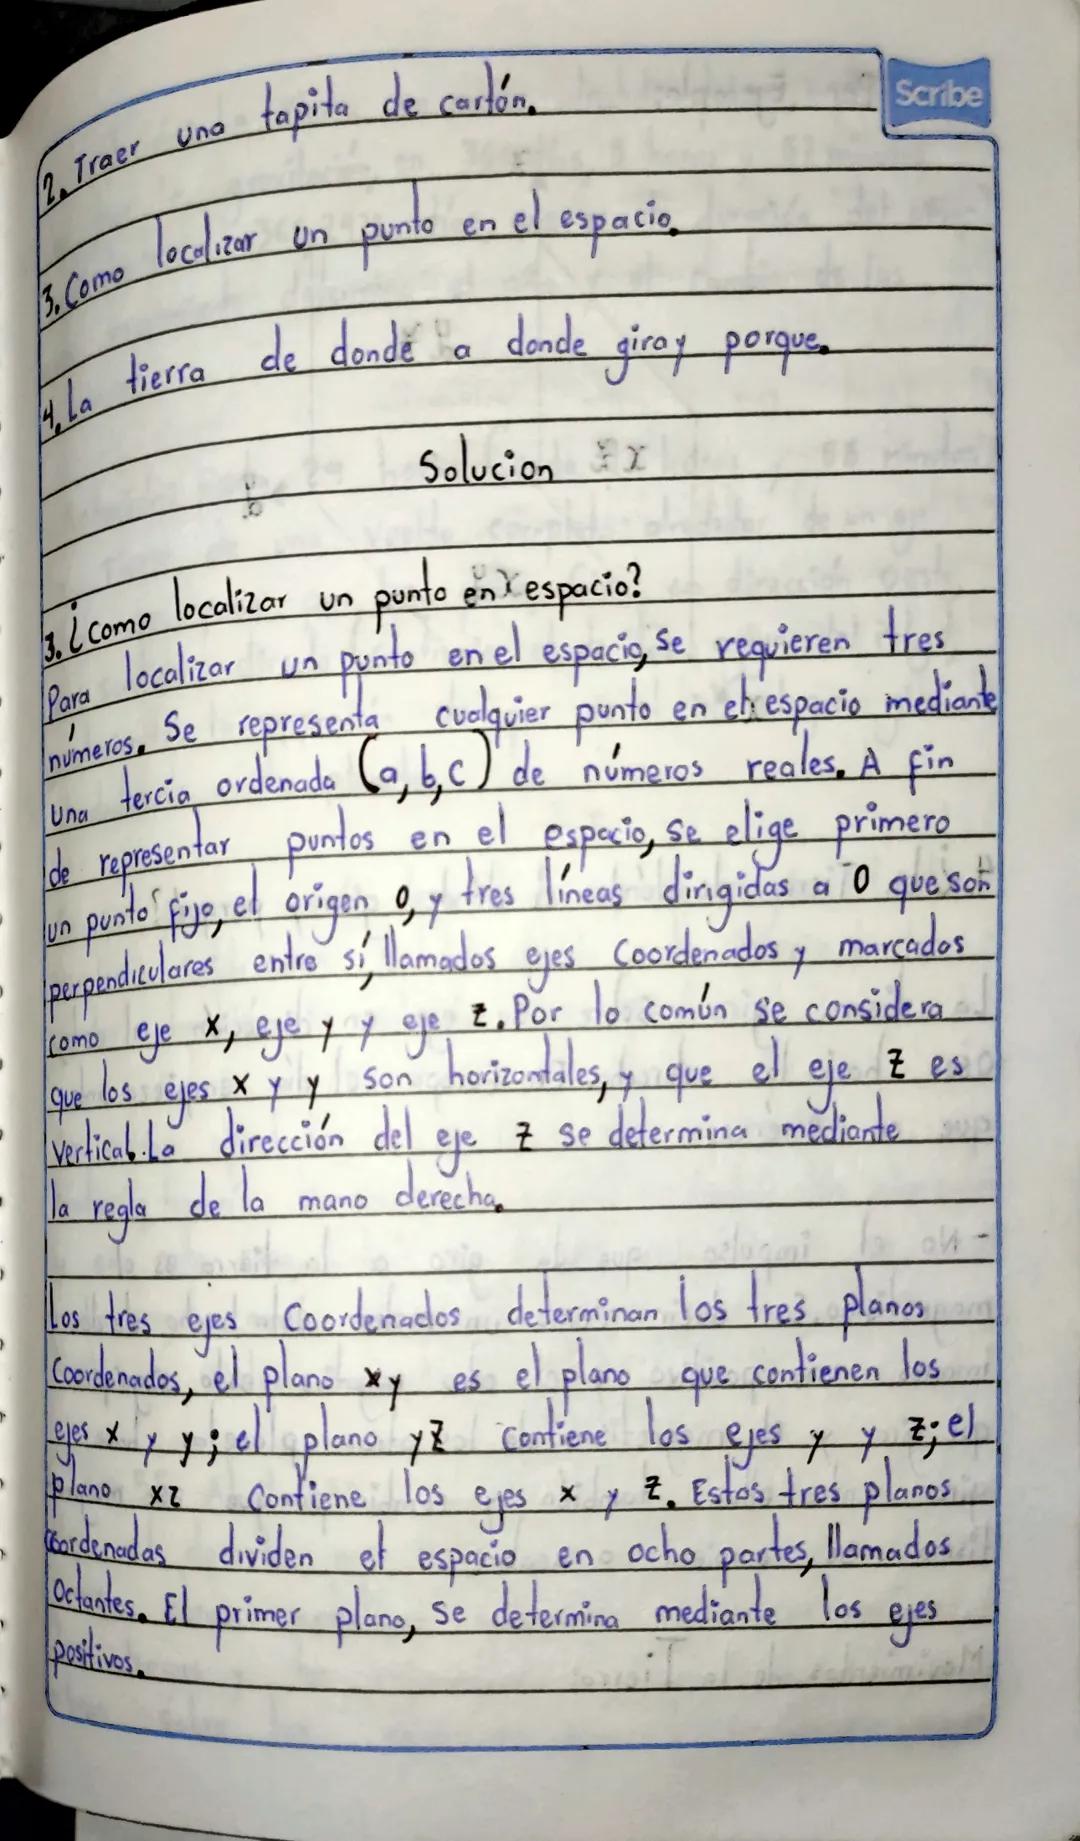 Scribe
2. Traer una tapita de cartón.
3. Como localizar un punto en el espacio.
4. La tierra de donde a donde gira y porque.
Solucion
3. ¿como localizar un punto en espacio?
Para localizar un punto en el espacio, se requieren tres
números. Se representa cualquier punto en el espacio mediante
una tercia ordenada (a, b, c) de números reales. A fin
de representar puntos en el espacio, se elige primero
un punto fijo, el origen O, y tres líneas dirigidas a O que son
perpendiculares entre sí, llamados ejes Coordenados y marcados
como eje x, eje y y eje z. Por lo común se considera
que los ejes x y y son horizontales, y que el eje z es
vertical. La dirección del eje z se determina mediante
la regla de la mano derecha.
Los tres ejes Coordenados determinan los tres planos
Coordenados, el plano xy es el plano que contienen los
ejes x y y; el plano yz Contiene los ejes y y z; el
plano xz Contiene los ejes x y z. Estos tres planos
coordenadas dividen el espacio en ocho partes, llamados
Octantes. El primer plano, se determina mediante los ejes
positivos.